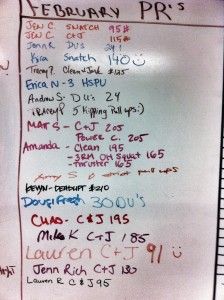 FEBRUARY PR's
JEN C. SNATCH 95#
JEN C. C+J 115#
Jenn R DU's 24!
Kyra Snatch 140
Tracy? Clean + Jerk #125
Erica N - 3 HSPU
Andrew S - DU's 24
5 Kipping Pull ups :)
MATS - C+J 205
Power C. 205
Amanda - Clean 195
- 3RM OH Squat 165
- thruster 165
S strict pull ups
KEVIN - DEADLIFT #210
Doug Fresh 30 DU's
CHAD - C&J 195
Mike K C+J 185
Lauren C+J 91
Jenn Rich C+J 130
Lauren R C&J 95